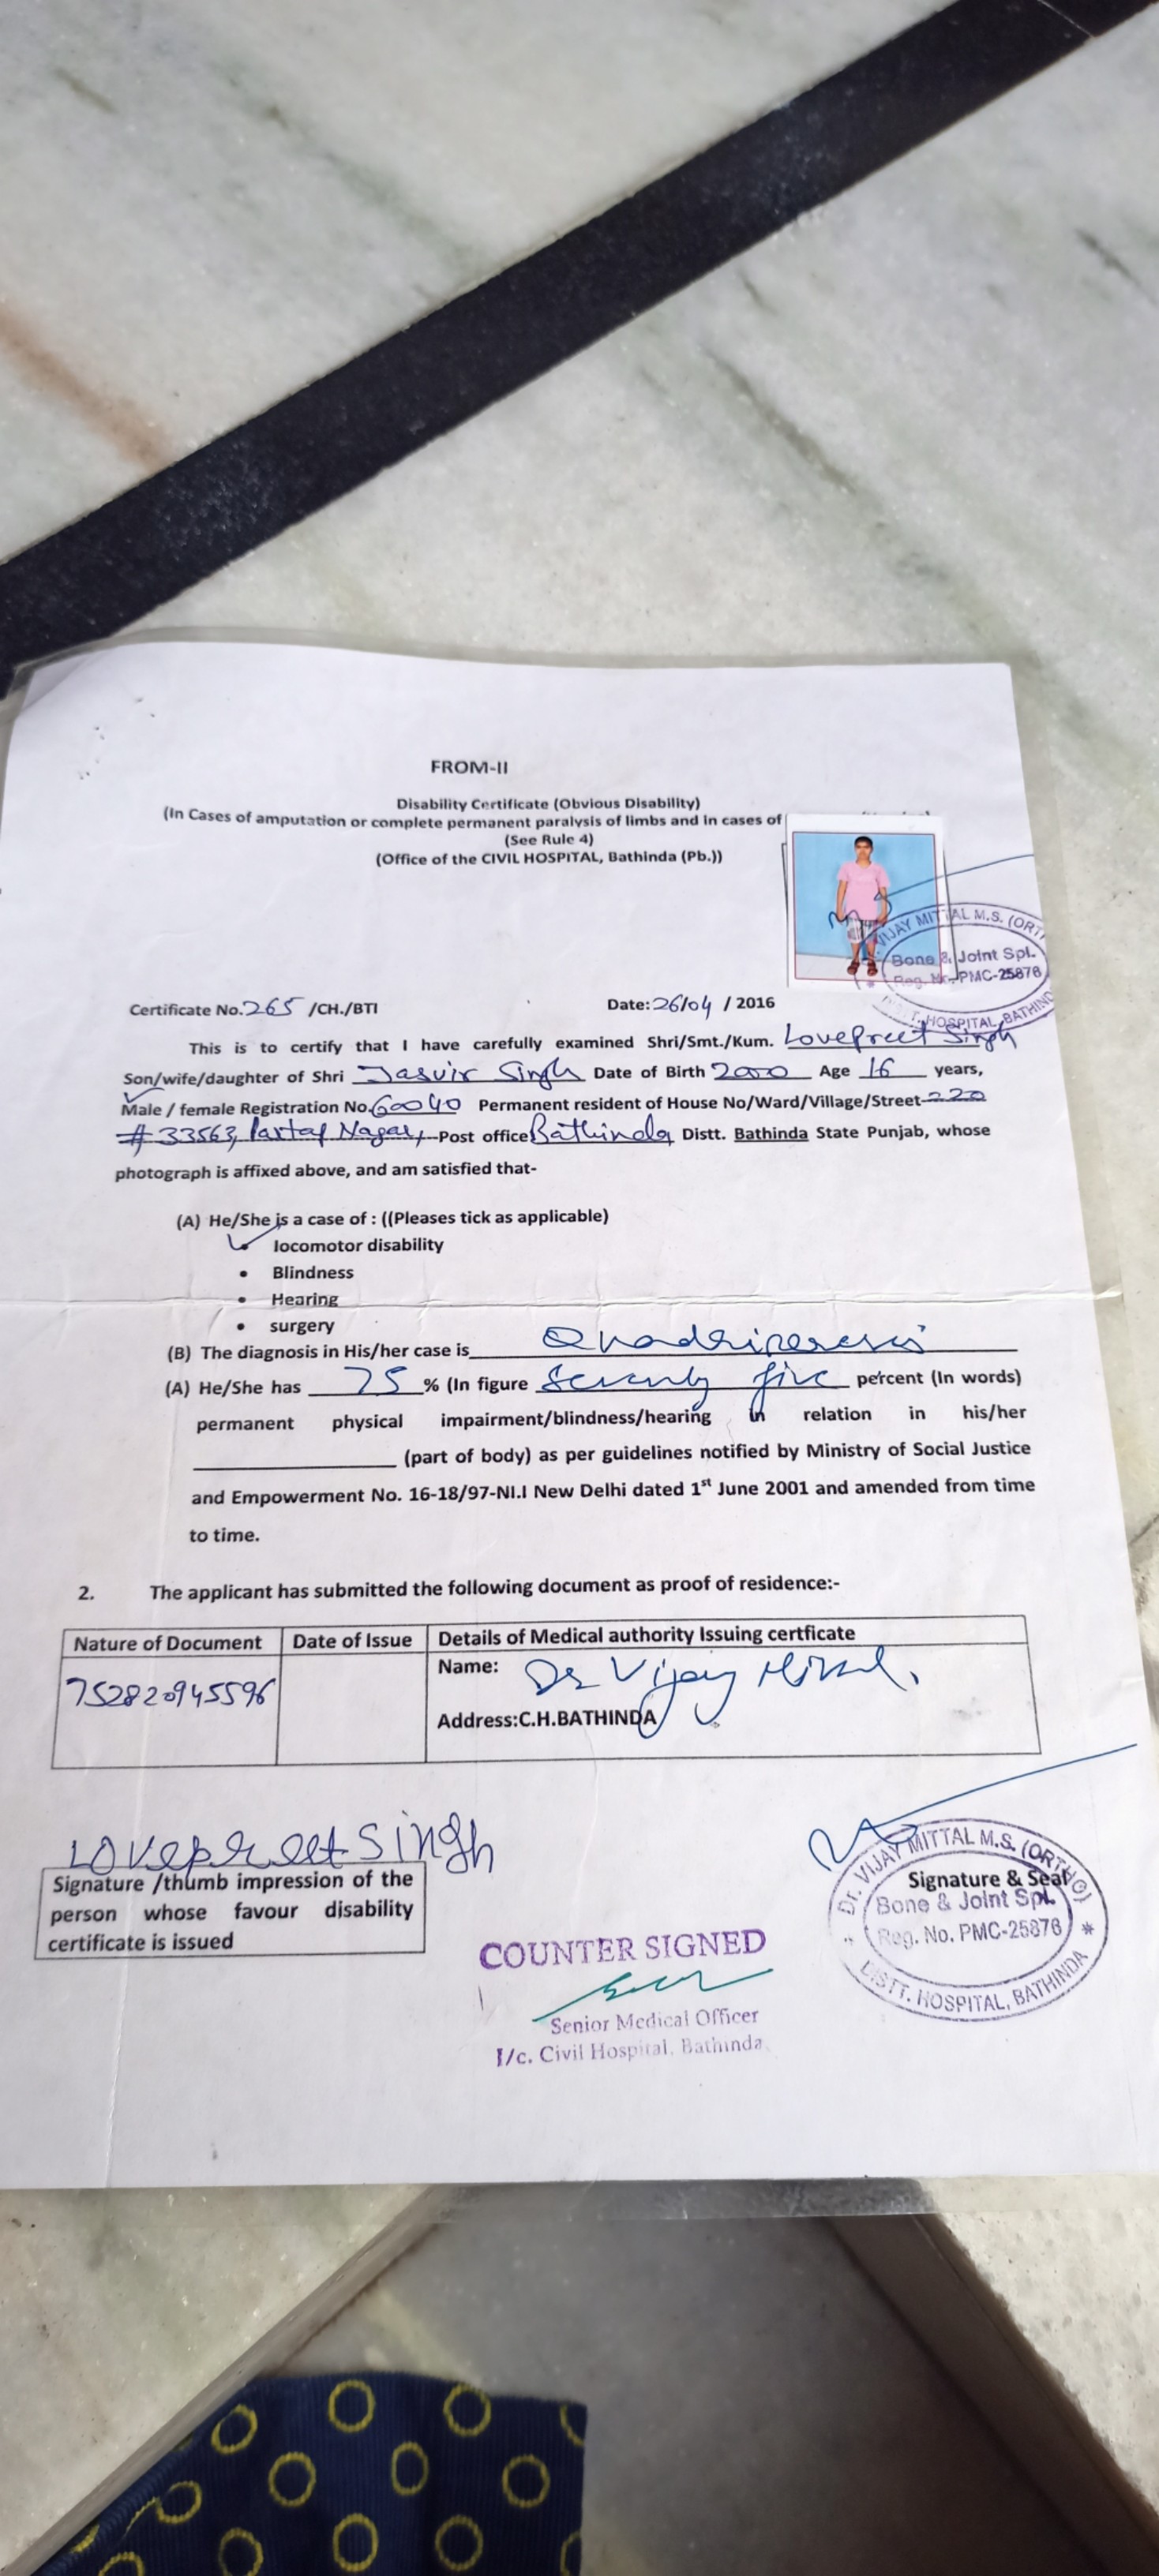 FROM-II
Disability Certificate (Obvious Disability)
(In Cases of amputation or complete permanent paralysis of limbs and in cases of
(See Rule 4)
(Office of the CIVIL HOSPITAL, Bathinda (Pb.))
VIJAY MITTAL M.S. (ORTH
Bone & Joint Spl.
Reg. No. PMC-25876
DISTT. HOSPITAL, BATHIND
Certificate No. 265 /CH./BTI Date: 26/04 / 2016
This is to certify that I have carefully examined Shri/Smt./Kum. Lovepreet Singh
Son/wife/daughter of Shri Jasvir Singh Date of Birth 2000 Age 16 years,
Male / female Registration No. 60040 Permanent resident of House No/Ward/Village/Street 220
# 33563, Partap Nagar, Post office Bathinda Distt. Bathinda State Punjab, whose
photograph is affixed above, and am satisfied that-
(A) He/She is a case of : ((Pleases tick as applicable)
locomotor disability
• Blindness
• Hearing
• surgery
(B) The diagnosis in His/her case is Quadriparesis
(A) He/She has 75 % (In figure Seventy five percent (In words)
permanent physical impairment/blindness/hearing in relation in his/her
(part of body) as per guidelines notified by Ministry of Social Justice
and Empowerment No. 16-18/97-NI.I New Delhi dated 1st June 2001 and amended from time
to time.
2. The applicant has submitted the following document as proof of residence:-
Nature of Document Date of Issue Details of Medical authority Issuing certficate
752820945596 Name: Dr Vijay Mittal.
Address:C.H.BATHINDA
Lovepreet Singh
Signature /thumb impression of the
person whose favour disability
certificate is issued
COUNTER SIGNED
Senior Medical Officer
I/c. Civil Hospital, Bathinda
Dr. VIJAY MITTAL M.S. (ORTHO)
Signature & Seal
Bone & Joint Spl.
Reg. No. PMC-25876
DISTT. HOSPITAL, BATHINDA